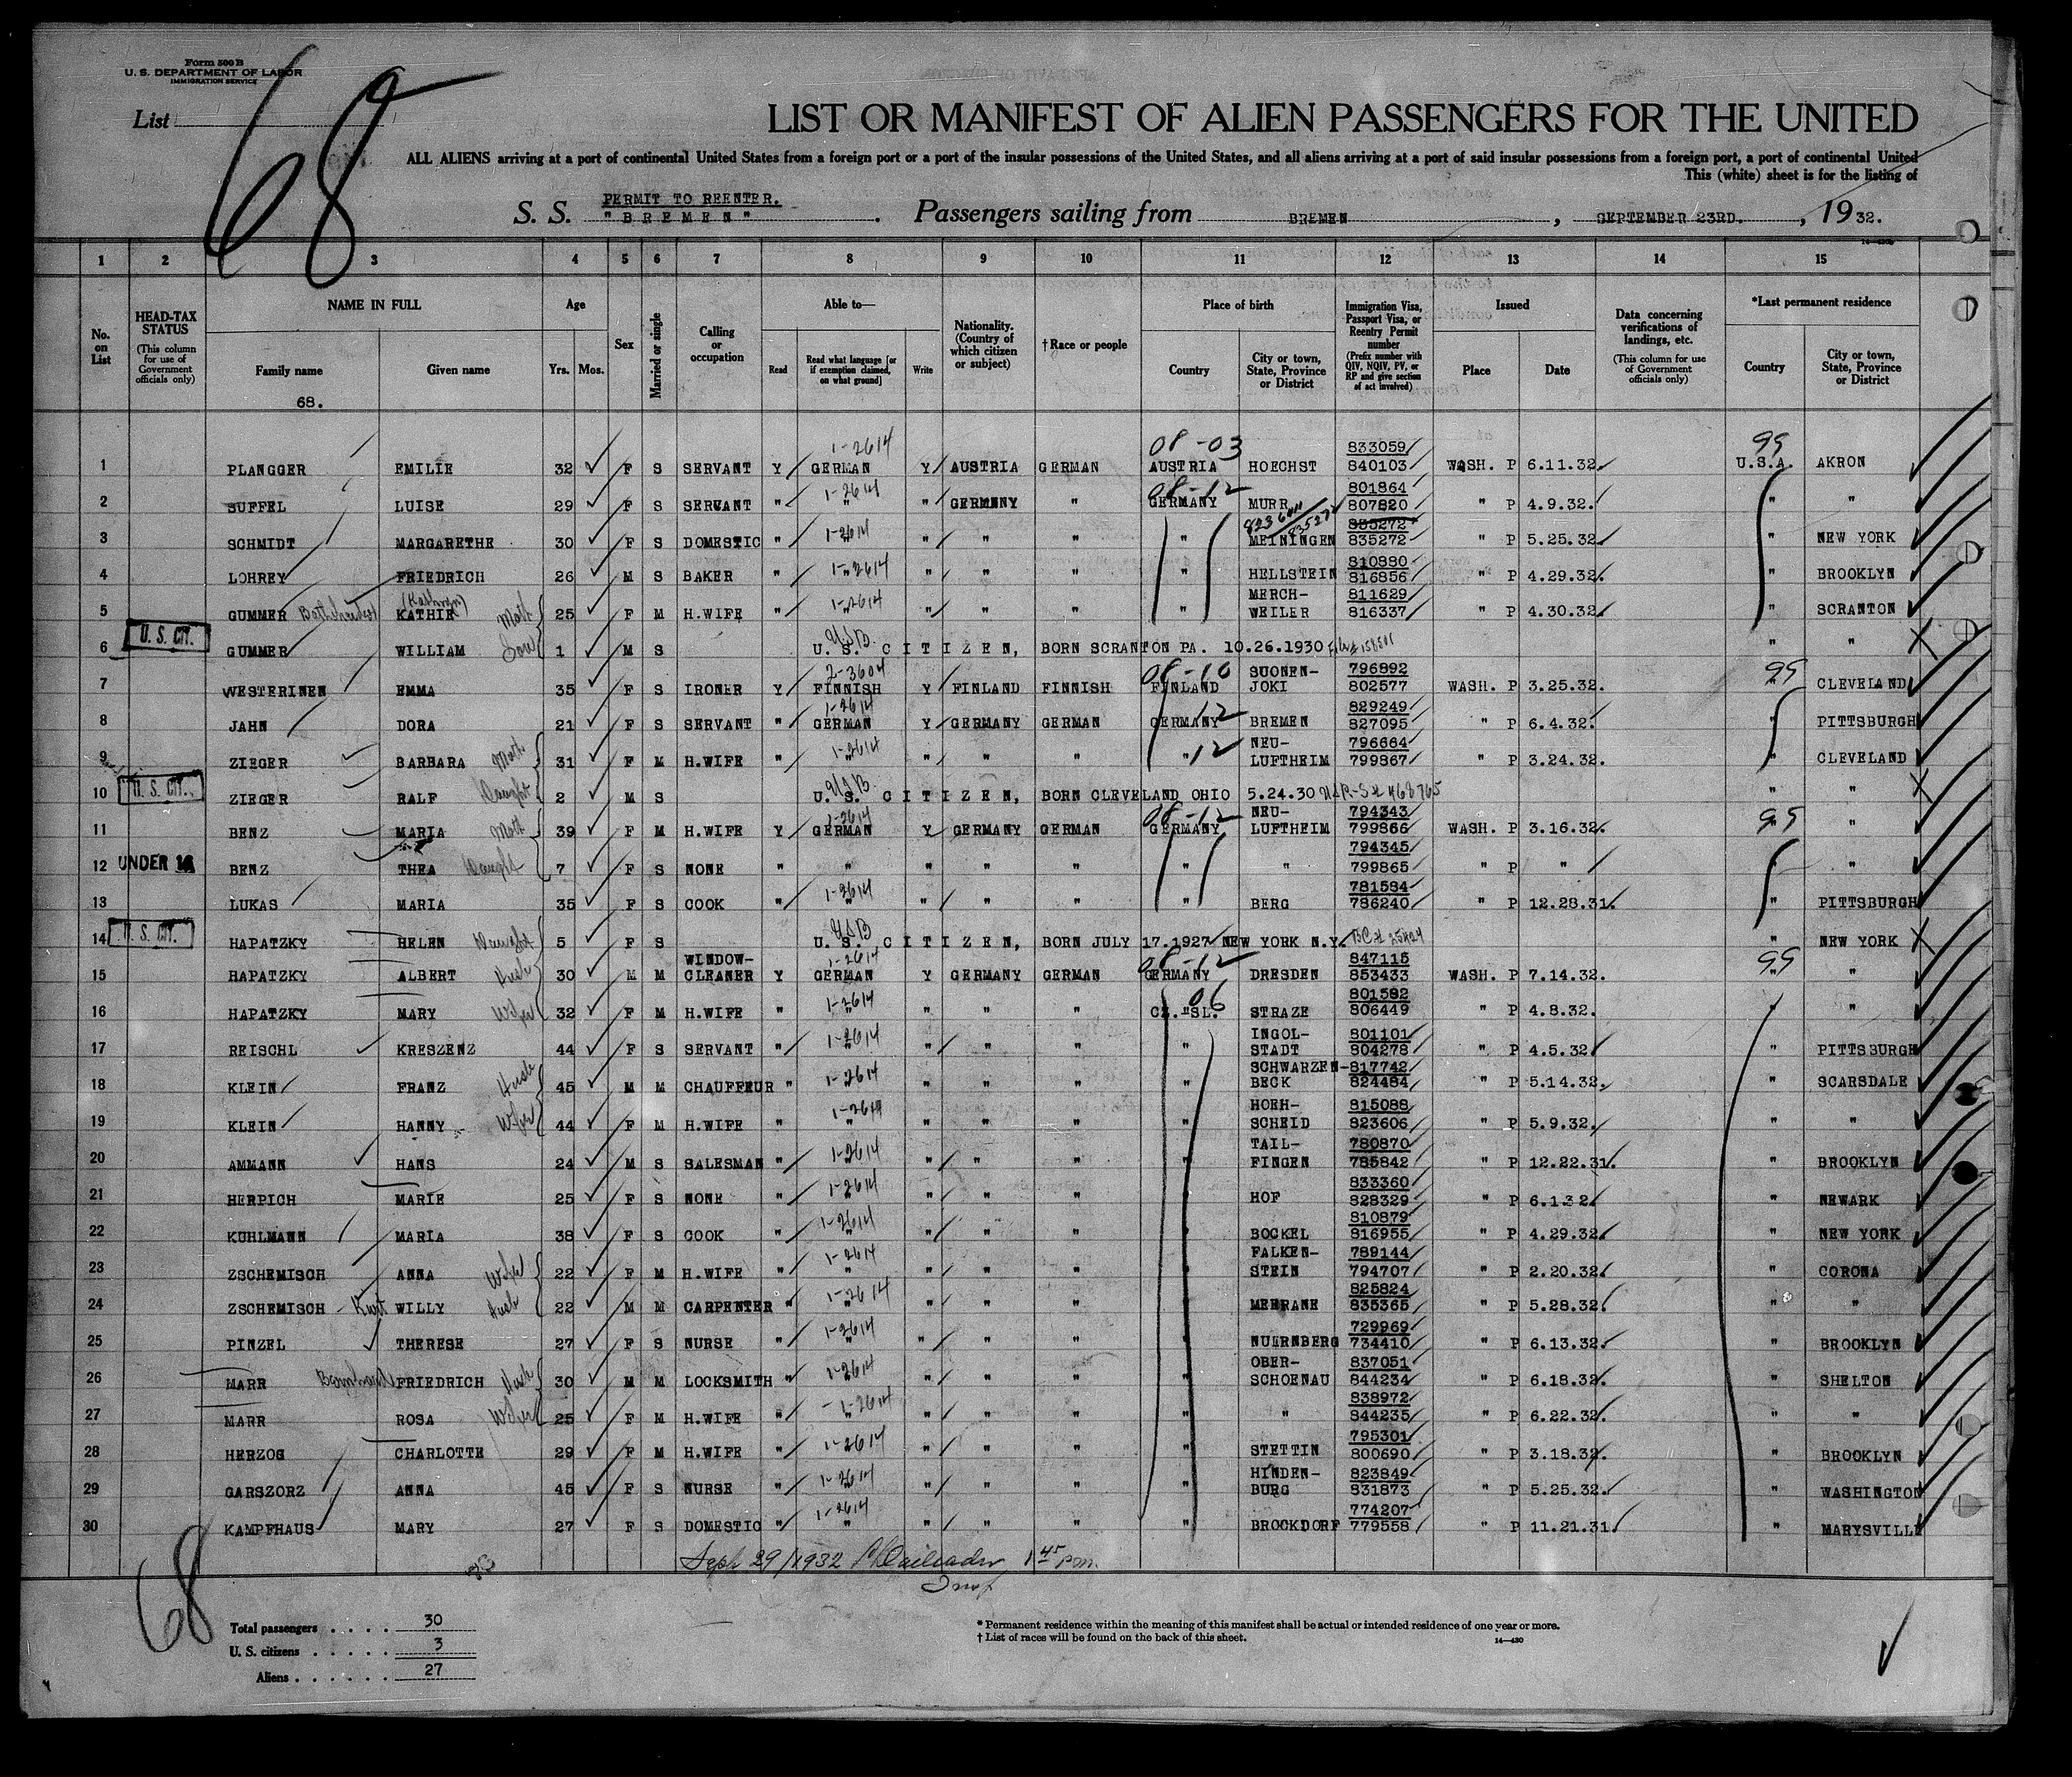 Form 500 B
U. S. DEPARTMENT OF LABOR
IMMIGRATION SERVICE
List
68
LIST OR MANIFEST OF ALIEN PASSENGERS FOR THE UNITED
ALL ALIENS arriving at a port of continental United States from a foreign port or a port of the insular possessions of the United States, and all aliens arriving at a port of said insular possessions from a foreign port, a port of continental United
This (white) sheet is for the listing of
PERMIT TO REENTER.
S. S. "BREMEN" . Passengers sailing from BREMEN , SEPTEMBER 23RD. , 1932.
1 2 3 4 5 6 7 8 9 10 11 12 13 14 15
No. on List
HEAD-TAX STATUS (This column for use of Government officials only)
NAME IN FULL
Family name
Given name
68.
Age
Yrs. Mos.
Sex
Married or single
Calling or occupation
Able to—
Read
Read what language [or if exemption claimed, on what ground]
Write
Nationality. (Country of which citizen or subject)
† Race or people
Place of birth
Country
City or town, State, Province or District
Immigration Visa, Passport Visa, or Reentry Permit number (Prefix number with QIV, NQIV, PV, or RP and give section of act involved)
Issued
Place
Date
Data concerning verifications of landings, etc. (This column for use of Government officials only)
*Last permanent residence
Country
City or town, State, Province or District
1-2614 08-03 833059 99
1 PLANGGER EMILIE 32 F S SERVANT Y GERMAN Y AUSTRIA GERMAN AUSTRIA HOECHST 840103 WASH. P 6.11.32. U.S.A. AKRON
1-2614 08-12 801864
2 SUFFEL LUISE 29 F S SERVANT " " " GERMANY " GERMANY MURR 807820 " P 4.9.32. " "
1-2614 835272 835272
3 SCHMIDT MARGARETHE 30 F S DOMESTIC " " " " " " MEININGEN 835272 " P 5.25.32. " NEW YORK
1-2614 810880
4 LOHREY FRIEDRICH 26 M S BAKER " " " " " " HELLSTEIN 816856 " P 4.29.32. " BROOKLYN
(Kathryn) Moth 1-2614 MERCH- 811629
5 GUMMER KATHIE 25 F M H.WIFE " " " " " " WEILER 816337 " P 4.30.32. " SCRANTON
U. S. CIT. USB
6 GUMMER WILLIAM Son 1 M S U. S. CITIZEN, BORN SCRANTON PA. 10.26.1930 " "
2-3604 08-10 SUONEN- 796892 99
7 WESTERINEN EMMA 35 F S IRONER Y FINNISH Y FINLAND FINNISH FINLAND JOKI 802577 WASH. P 3.25.32. " CLEVELAND
1-2614 12 829249
8 JAHN DORA 21 F S SERVANT " GERMAN Y GERMANY GERMAN GERMANY BREMEN 827095 " P 6.4.32. " PITTSBURGH
1-2614 12 NEU- 796664
9 ZIEGER BARBARA Moth 31 F M H.WIFE " " " " " " LUFTHEIM 799867 " P 3.24.32. " CLEVELAND
U. S. CIT. USB
10 ZIEGER RALF Daught 2 M S U. S. CITIZEN, BORN CLEVELAND OHIO 5.24.30 " "
1-2614 08-12 NEU- 794343 99
11 BENZ MARIA Moth 39 F M H.WIFE Y GERMAN Y GERMANY GERMAN GERMANY LUFTHEIM 799866 WASH. P 3.16.32. " "
794345
12 UNDER 16 BENZ THEA Daught 7 F S NONE " " " " " " " 799865 " P " " "
1-2614 781584
13 LUKAS MARIA 35 F S COOK " " " " " " BERG 786240 " P 12.28.31. " PITTSBURGH
U. S. CIT. USB
14 HAPATZKY HELEN Daught 5 F S U. S. CITIZEN, BORN JULY 17.1927 NEW YORK N.Y. " NEW YORK
WINDOW- 1-2614 08-12 847115 99
15 HAPATZKY ALBERT Husb 30 M M CLEANER Y GERMAN Y GERMANY GERMAN GERMANY DRESDEN 853433 WASH. P 7.14.32. " "
1-2614 06 801592
16 HAPATZKY MARY Wife 32 F M H.WIFE " " " " " CZ.-SL. STRAZE 806449 " P 4.8.32. " "
1-2614 INGOL- 801101
17 REISCHL KRESZENZ 44 F S SERVANT " " " " " " STADT 804278 " P 4.5.32 " PITTSBURGH
1-2614 SCHWARZEN- 817742
18 KLEIN FRANZ Husb 45 M M CHAUFFEUR " " " " " " BECK 824484 " P 5.14.32. " SCARSDALE
1-2614 HOEH- 815088
19 KLEIN HANNY Wife 44 F M H.WIFE " " " " " " SCHEID 823606 " P 5.9.32. " "
1-2614 TAIL- 780870
20 AMMANN HANS 24 M S SALESMAN " " " " " " FINGEN 785842 " P 12.22.31. " BROOKLYN
1-2614 833360
21 HERPICH MARIE 25 F S NONE " " " " " " HOF 828329 " P 6.1.32 " NEWARK
1-2614 810879
22 KUHLMANN MARIA 38 F S COOK " " " " " " BOCKEL 816955 " P 4.29.32. " NEW YORK
1-2614 FALKEN- 789144
23 ZSCHEMISCH ANNA Wife 22 F M H.WIFE " " " " " " STEIN 794707 " P 2.20.32. " CORONA
1-2614 825824
24 ZSCHEMISCH - Kurt WILLY Husb 22 M M CARPENTER " " " " " " MEERANE 835365 " P 5.28.32. " "
1-2614 729969
25 PINZEL THERESE 27 F S NURSE " " " " " " NUERNBERG 734410 " P 6.13.32. " BROOKLYN
1-2614 OBER- 837051
26 MARR Bernhard FRIEDRICH Husb 30 M M LOCKSMITH " " " " " " SCHOENAU 844234 " P 6.18.32. " SHELTON
1-2614 838972
27 MARR ROSA Wife 25 F M H.WIFE " " " " " " " 844235 " P 6.22.32. " "
1-2614 795301
28 HERZOG CHARLOTTE 29 F M H.WIFE " " " " " " STETTIN 800690 " P 3.18.32. " BROOKLYN
1-2614 HINDEN- 823849
29 GARSZORZ ANNA 45 F S NURSE " " " " " " BURG 831873 " P 5.25.32. " WASHINGTON
1-2614 774207
30 KAMPFHAUS MARY 27 F S DOMESTIC " " " " " " BROCKDORF 779558 " P 11.21.31. " MARYSVILLE
Sept 29/1932 1 45 p.m.
Insp
68
Total passengers . . . . 30
U. S. citizens . . . . . 3
Aliens . . . . . . 27
* Permanent residence within the meaning of this manifest shall be actual or intended residence of one year or more.
† List of races will be found on the back of this sheet.
14—430